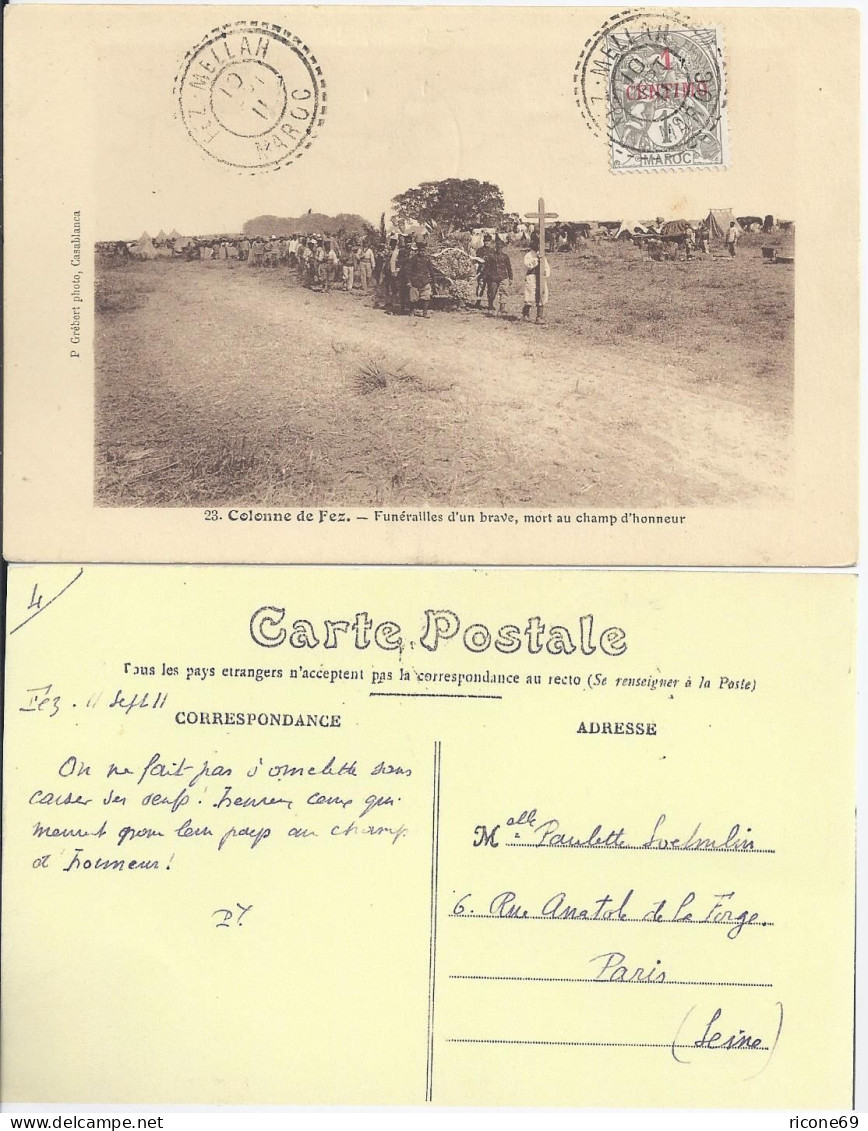 FEZ-MELLAH
10
11
MAROC
FEZ-MELLAH
10
MAROC
1
CENTIMO
1
MAROC
P Grébert photo, Casablanca
23. Colonne de Fez. — Funérailles d'un brave, mort au champ d'honneur
4
Carte Postale
Tous les pays etrangers n'acceptent pas la correspondance au recto (Se renseigner à la Poste)
Fez. 11 Sept. 11
CORRESPONDANCE
ADRESSE
On ne fait pas d'omelette sans
casser des oeufs! Heureux ceux qui
meurent pour leur pays au champ
d'honneur!
M alle Paulette
6. Rue Anatole de la Forge.
Paris
(Seine)
ricone69